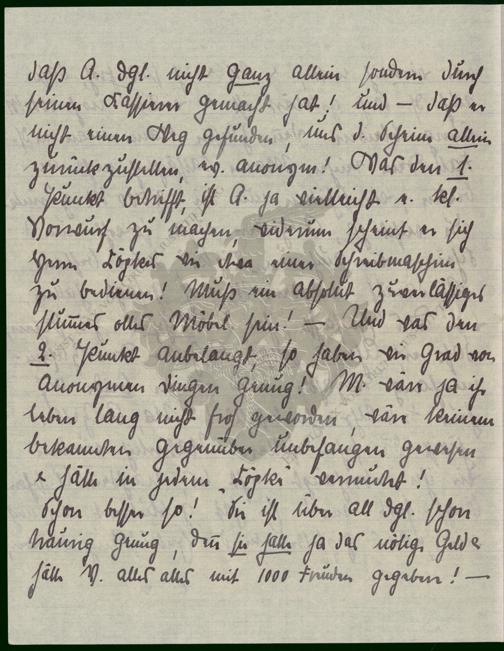 daß A. dgl. nicht ganz allein sondern durch
seinen Kassierer gemacht hat! und — daß er
nicht einen Weg gefunden, uns d. Scheine allein
zurückzustellen, ev. anonym! Was den 1.
Punkt betrifft, ist A. ja vielleicht e. kl.
Vorwurf zu machen, widerum scheint er sich
Herrn Köpkes wie etwa einer Schreibmaschin
zu bedienen! Muß ein absolut zuverlässiges
stummes olles Möbel sein! — Und was den
2. Punkt anbelangt, so haben wir Grad von
anonymen Dingen genug! M. wäre ja ihr
leben lang nicht froh geworden, wäre keinem
bekannten gegenüber unbefangen gewesen
& hätte in jedem "Köpke" vermutet!
Schon besser so! Sie ist über all dgl. schon
traurig genug, denn sie hatte ja das nötige Geld &
hätte V. alles alles mit 1000 Freuden gegeben! —